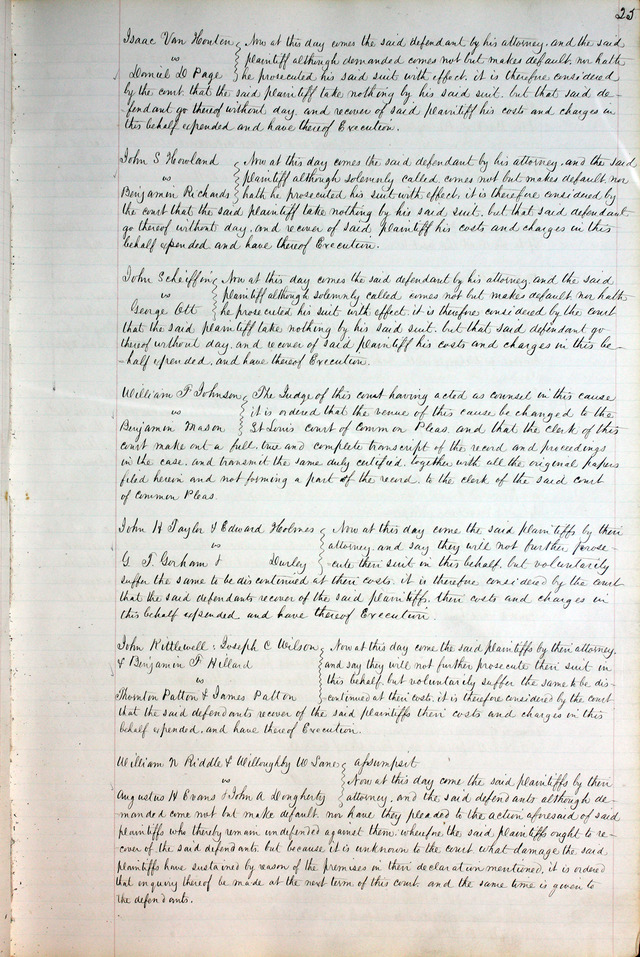 25
Isaac Van Houten } Now at this day comes the said defendant by his attorney, and the said
vs } plaintiff although demanded comes not but makes default, nor hath
Daniel D Page } he prosecuted his said suit with effect, it is therefore considered
by the court, that the said plaintiff take nothing by his said suit, but that said de-
-fendant go thereof without day, and recover of said plaintiff his costs and charges in
this behalf expended and have thereof Execution.
John S Howland } Now at this day comes the said defendant by his attorney, and the said
vs } plaintiff although solemnly called comes not but makes default nor
Benjamin Richards } hath he prosecuted his suit with effect, it is therefore considered by
the court that the said plaintiff take nothing by his said suit, but that said defendant
go thereof without day, and recover of said plaintiff his costs and charges in this
behalf expended and have thereof Execution.
John Scheiffing } Now at this day comes the said defendant by his attorney, and the said
vs } plaintiff although solemnly called comes not but makes default nor hath
George Ott } he prosecuted his suit with effect it is therefore considered by the court
that the said plaintiff take nothing by his said suit, but that said defendant go
thereof without day, and recover of said plaintiff his costs and charges in this be-
-half expended, and have thereof Execution.
William F Johnson } The Judge of this court having acted as counsel in this cause
vs } it is ordered that the venue of this cause be changed to the
Benjamin Mason } St Louis court of Common Pleas, and that the clerk of this
court make out a full, true and complete transcript of the record and proceedings
in the case, and transmit the same duly certified, together with all the original papers
filed herein and not forming a part of the record, to the clerk of the said court
of Common Pleas.
John H Tayler & Edward Holmes } Now at this day come the said plaintiffs by their
vs } attorney, and say they will not further prose-
G F Gorham & Durley } -cute their suit in this behalf, but voluntarily
suffer the same to be discontinued at their costs, it is therefore considered by the court
that the said defendants recover of the said plaintiffs, their costs and charges in
this behalf expended and have thereof Execution.
John Kittlewell, Joseph C Wilson } Now at this day come the said plaintiffs by their attorney,
& Benjamin F Hillard } and say they will not further prosecute their suit in
vs } this behalf, but voluntarily suffer the same to be dis-
Thornton Patton & James Patton } continued at their costs, it is therefore considered by the court
that the said defendants recover of the said plaintiffs their costs and charges in this
behalf expended, and have thereof Execution.
William N Riddle & Willoughby W Lane } assumpsit
vs } Now at this day come the said plaintiffs by their
Augustus H Evans & John A Dougherty } attorney, and the said defendants although de-
manded come not but make default, nor have they pleaded to the action aforesaid of said
plaintiffs who thereby remain undefended against them, wherefore the said plaintiffs ought to re-
cover of the said defendants but because it is unknown to the court what damage the said
plaintiffs have sustained by reason of the premises in their declaration mentioned, it is ordered
that enquiry thereof be made at the next term of this court and the same time is given to
the defendants.